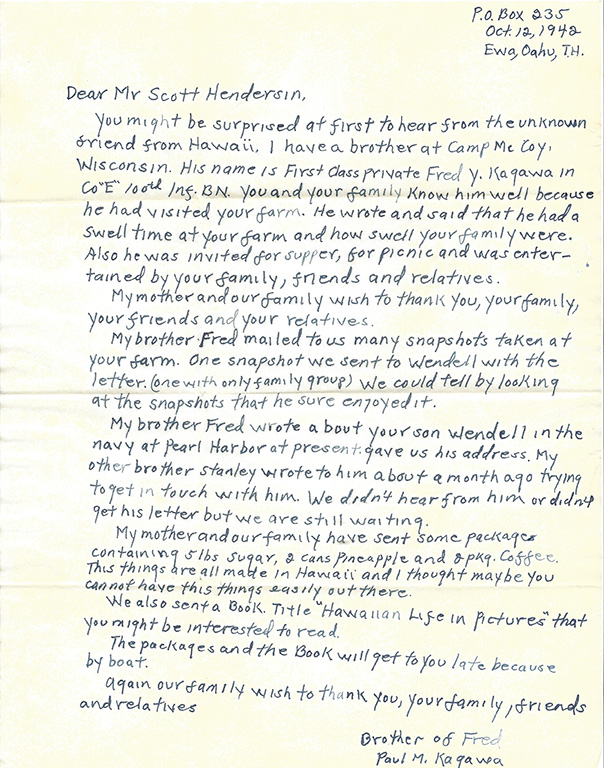 P.O. Box 235
Oct. 12, 1942
Ewa, Oahu, T.H.
Dear Mr Scott Hendersin,
You might be surprised at first to hear from the unknown
friend from Hawaii. I have a brother at Camp Mc Coy,
Wisconsin. His name is First Class private Fred Y. Kagawa in
Co "E" 100th Inf. BN. You and your family know him well because
he had visited your farm. He wrote and said that he had a
swell time at your farm and how swell your family were.
Also he was invited for supper, for picnic and was enter-
tained by your family, friends and relatives.
My mother and our family wish to thank you, your family,
your friends and your relatives.
My brother Fred mailed to us many snapshots taken at
your farm. One snapshot we sent to Wendell with the
letter. (one with only family group) We could tell by looking
at the snapshots that he sure enjoyed it.
My brother Fred wrote about your son Wendell in the
navy at Pearl Harbor at present. gave us his address. My
other brother Stanley wrote to him about a month ago trying
to get in touch with him. We didn't hear from him or didn't
get his letter but we are still waiting.
My mother and our family have sent some packages
containing 5 lbs Sugar, 2 cans Pineapple and 2 pkg. Coffee.
This things are all made in Hawaii and I thought maybe you
cannot have this things easily out there.
We also sent a Book. Title "Hawaiian Life in Pictures" that
you might be interested to read.
The packages and the Book will get to you late because
by boat.
Again our family wish to thank you, your family, friends
and relatives
Brother of Fred
Paul M. Kagawa